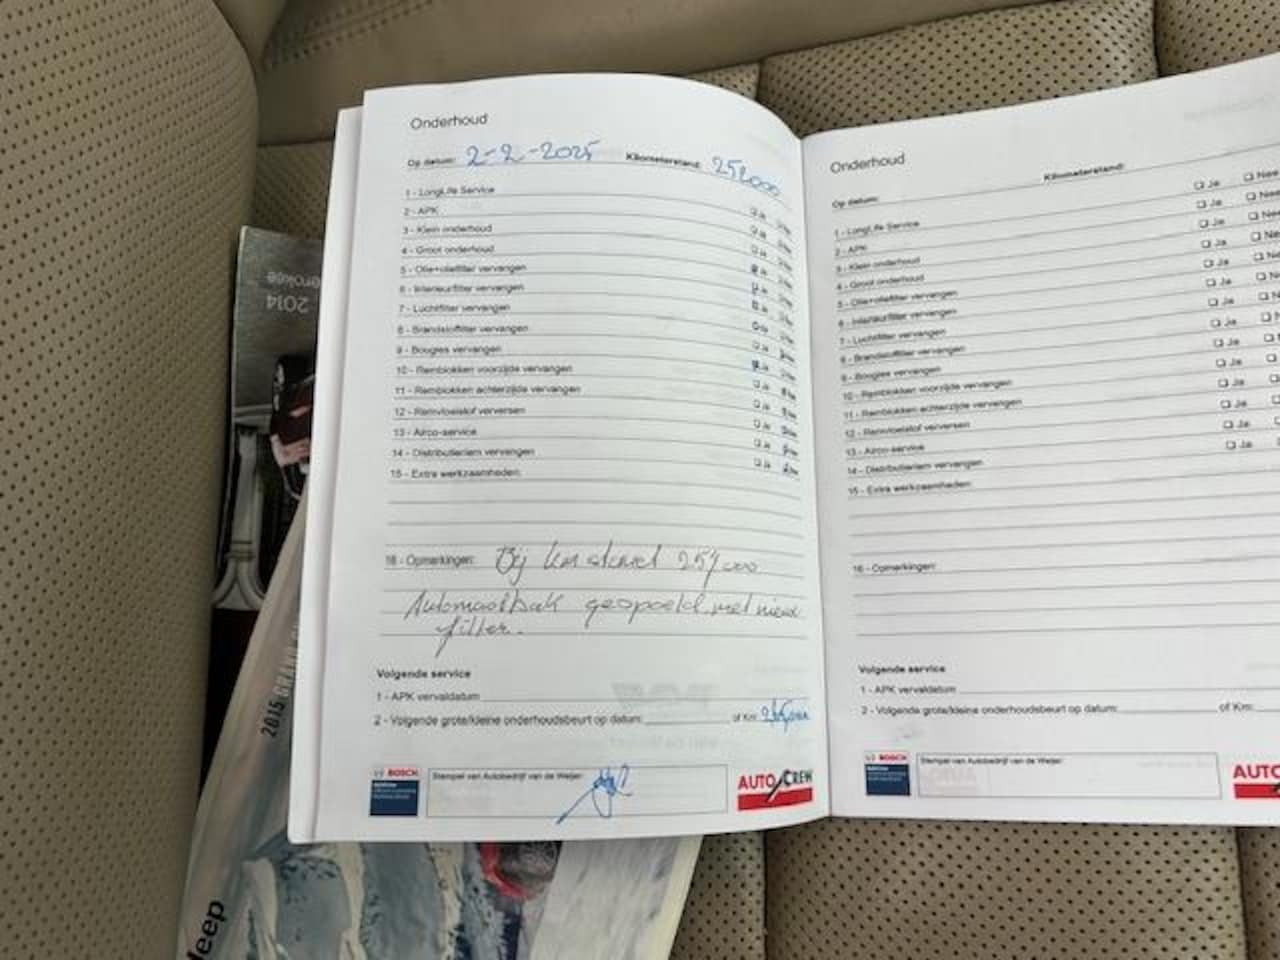 Onderhoud
Op datum: 2-2-2025 Kilometerstand:
1 - LongLife Service
2 - APK
3 - Klein onderhoud
4 - Groot onderhoud
5 - Olie+oliefilter vervangen
6 - Interieurfilter vervangen
7 - Luchtfilter vervangen
8 - Brandstoffilter vervangen
9 - Bougies vervangen
10 - Remblokken voorzijde vervangen
11 - Remblokken achterzijde vervangen
12 - Remvloeistof verversen
13 - Airco-service
14 - Distributieriem vervangen
15 - Extra werkzaamheden:
16 - Opmerkingen: Bij km stand 257000
Automaatbak gespoeld met nieuw
filter.
Volgende service
1 - APK vervaldatum
2 - Volgende grote/kleine onderhoudsbeurt op datum: of Km:
BOSCH
Stempel van Autobedrijf van de Weijer:
AUTO CREW
Onderhoud
Op datum: Kilometerstand:
1 - LongLife Service Ja Nee
2 - APK Ja Nee
3 - Klein onderhoud Ja Nee
4 - Groot onderhoud Ja
5 - Olie+oliefilter vervangen Ja
6 - Interieurfilter vervangen Ja
7 - Luchtfilter vervangen Ja
8 - Brandstoffilter vervangen Ja
9 - Bougies vervangen Ja
10 - Remblokken voorzijde vervangen Ja
11 - Remblokken achterzijde vervangen Ja
12 - Remvloeistof verversen Ja
13 - Airco-service Ja
14 - Distributieriem vervangen Ja
15 - Extra werkzaamheden:
16 - Opmerkingen:
Volgende service
1 - APK vervaldatum
2 - Volgende grote/kleine onderhoudsbeurt op datum: of Km:
BOSCH
Stempel van Autobedrijf van de Weijer:
AUTO
2014
2015 GRAND
Jeep